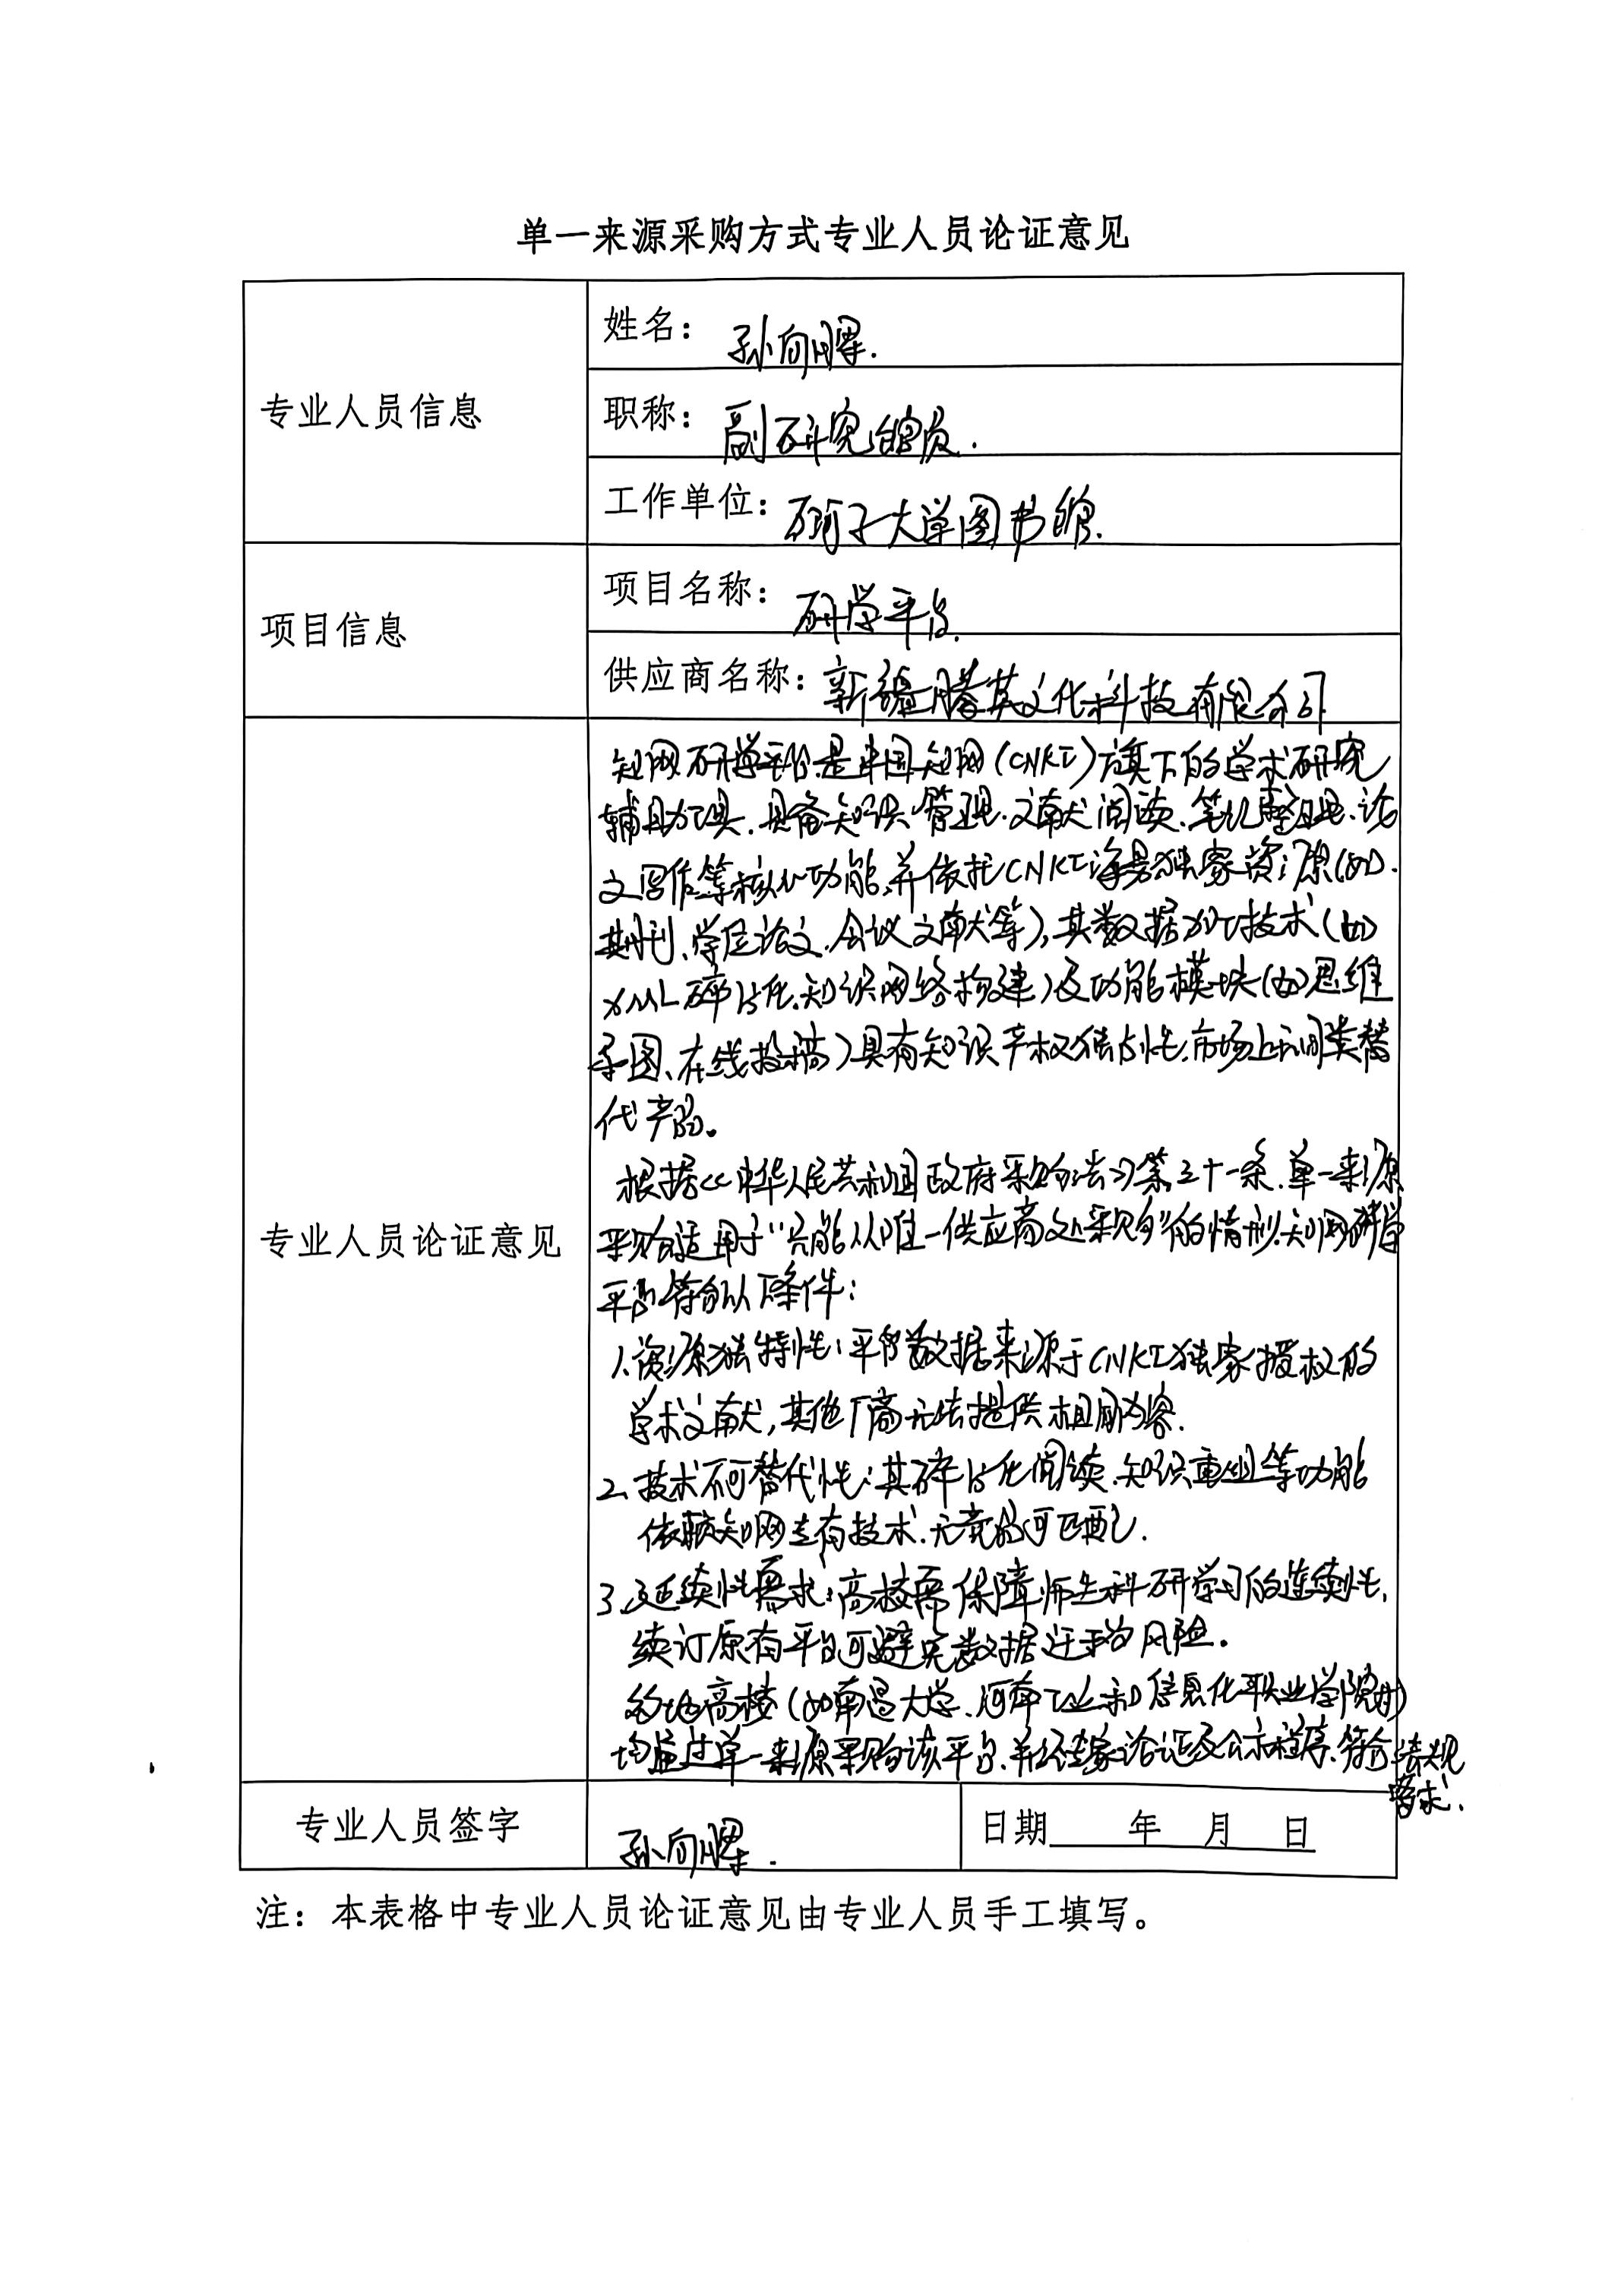 单一来源采购方式专业人员论证意见
专业人员信息
姓名：孙向晖.
职称：副研究馆员.
工作单位：石河子大学图书馆.
项目信息
项目名称：研学平台.
供应商名称：新疆腾英文化科技有限公司
专业人员论证意见
知网研学平台是中国知网(CNKI)旗下的学术研究
辅助工具.具备知识管理.文献阅读.笔记整理.论
文写作等核心功能,并依托CNKI海量独家资源(如.
期刊、学位论文.会议文献等),其数据加工技术(如
XML碎片化.知识网络构建)及功能模块(如思维
导图、在线投稿)具有知识产权独占性.市场上无同类替
代产品。
根据《中华人民共和国政府采购法》第三十一条.单一来源
采购适用于"只能从唯一供应商处采购"的情形.知网研学
平台符合以下条件：
1.资源独特性：平台数据来源于CNKI独家授权的
学术文献,其他厂商无法提供相同内容.
2.技术不可替代性：其碎片化阅读.知识重组等功能
依赖知网专有技术.无竞品可匹配.
3.延续性需求：高校需保障师生科研学习的连续性,
续订原有平台可避免数据迁移的风险。
多地高校(如南昌大学.河南工业和信息化职业学院等)
均通过单一来源采购该平台.并经专家论证及公示程序.符合法规
要求.
专业人员签字
孙向晖.
日期 年 月 日
注：本表格中专业人员论证意见由专业人员手工填写。